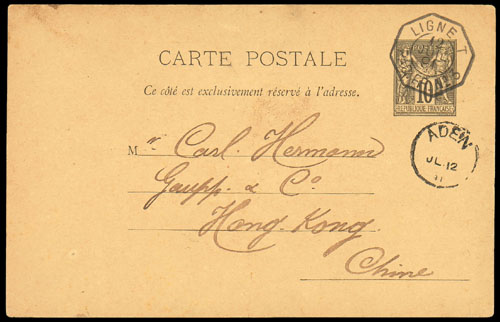 LIGNE T
12
CARTE POSTALE
Ce côté est exclusivement réservé à l'adresse.
10
REPUBLIQUE FRANÇAISE
ADEN
JL 12
M r Carl Hermann
Gaupp & Co
Hong Kong
Chine